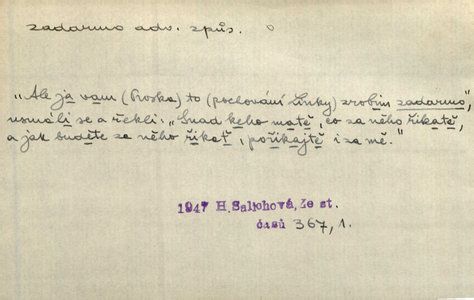 zadarmo adv. způs.
"Ale ja vam (Proska) to (pochování Linky) zrobim zadarmo",
usmáli se a řekli: "Snad keho matě, co za něho řikatě,
a jak budětě za něho řikať, pořikajtě i za mě."
1947 H. Salichová, Ze st.
časů 367, 1.